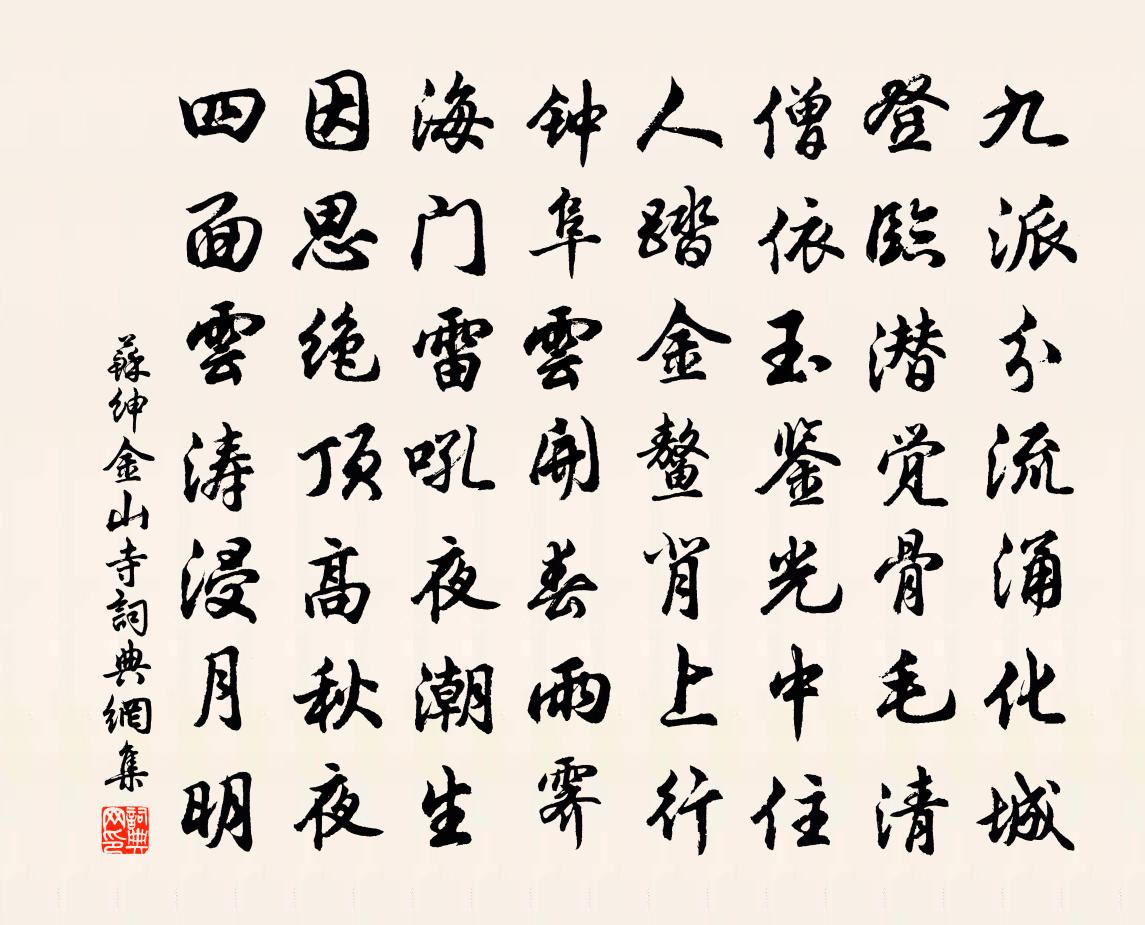 九派分流涌化城
登臨潜觉骨毛清
僧依玉鉴光中住
人踏金鳌背上行
钟阜雲開春雨霽
海门雷吼夜潮生
因思绝顶高秋夜
四面雲涛浸月明
蘇绅金山寺詞典網集
詞典网印